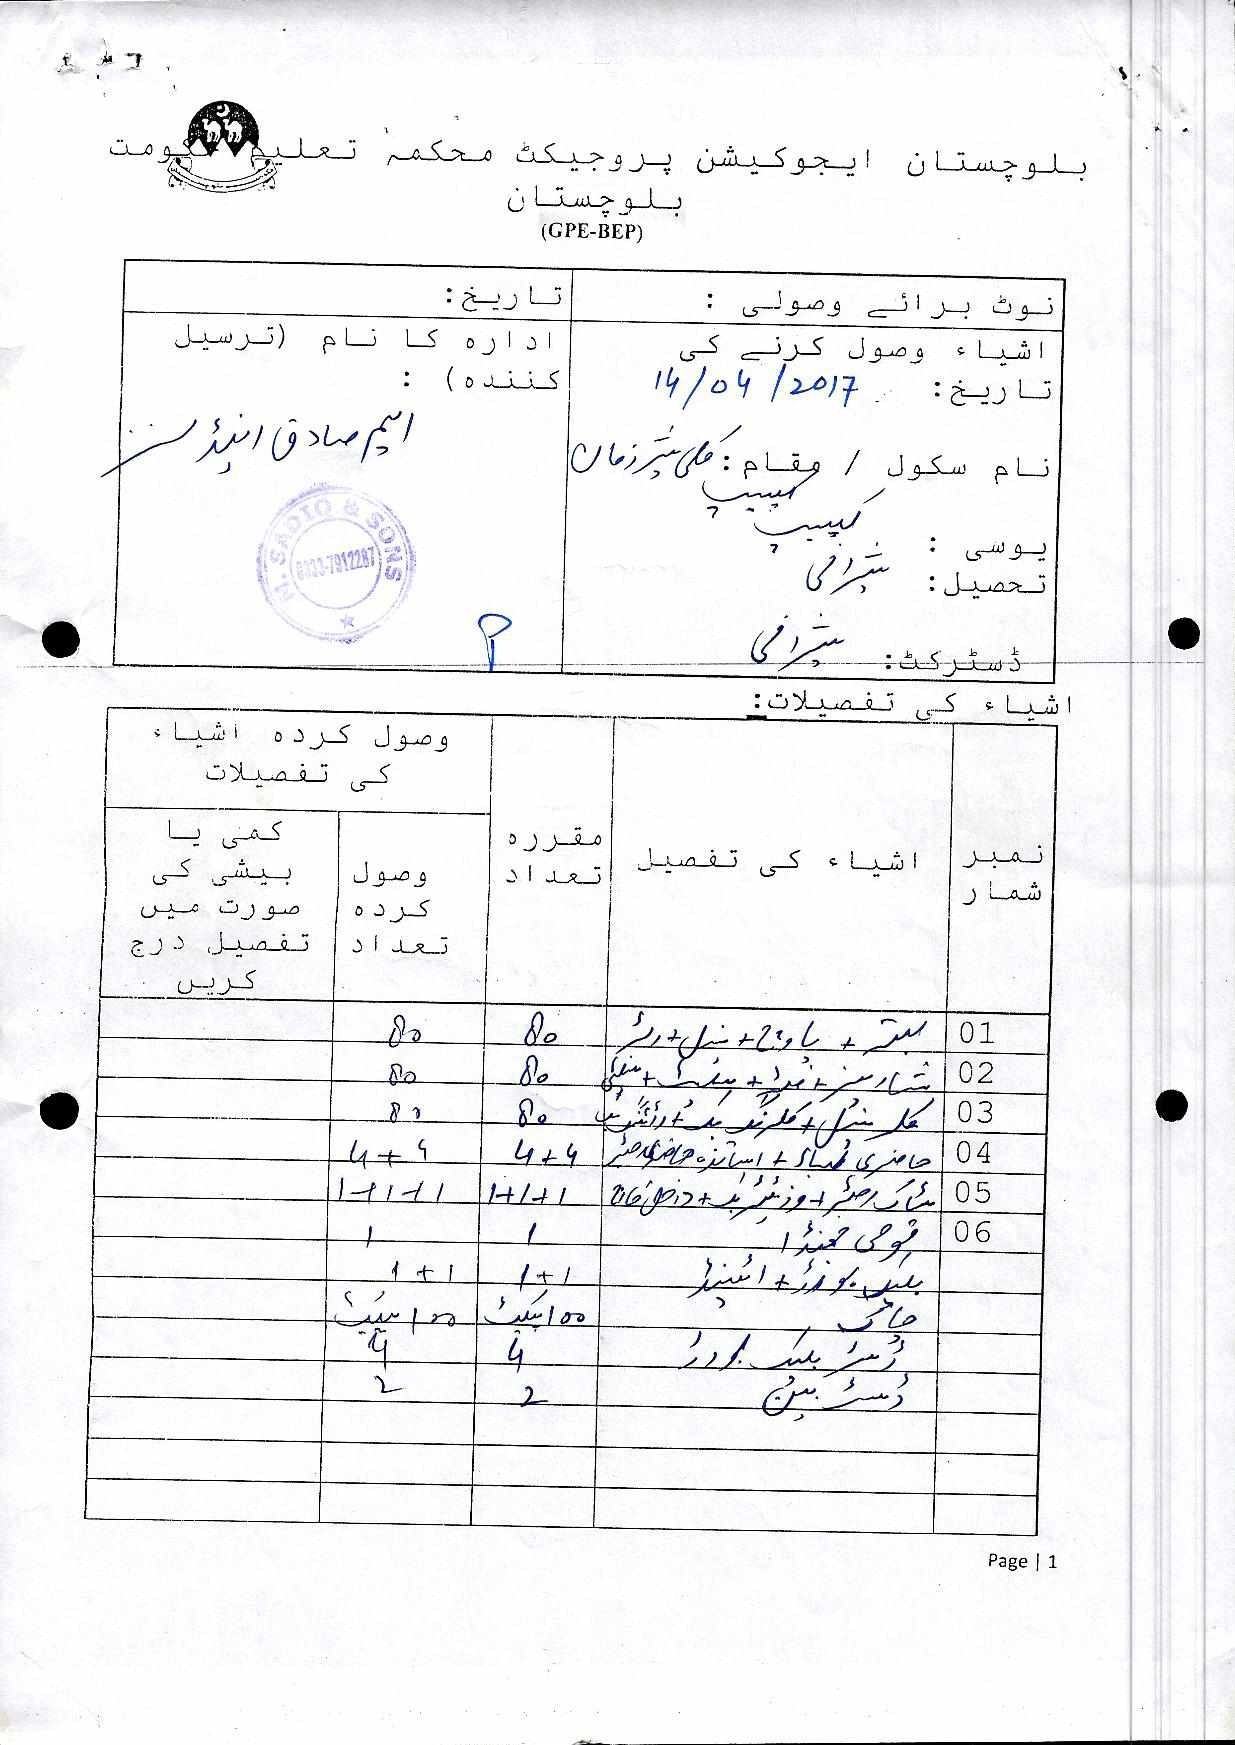 بلوچستان ایجوکیشن پروجیکٹ محکمہ تعلیم حکومت
بلوچستان
(GPE-BEP)
نوٹ برائے وصولی :
تاریخ:
اشیاء وصول کرنے کی
تاریخ: 14/04/2017
ادارہ کا نام (ترسیل
کنندہ) :
ایم صادق اینڈ سنز
نام سکول / مقام: کلی شیر زمان
کپیپ
یوسی : کپیپ
تحصیل: شیرانی
ڈسٹرکٹ: شیرانی
M. SADIQ & SONS
0333-7912287
اشیاء کی تفصیلات:
نمبر
شمار
اشیاء کی تفصیل
مقررہ
تعداد
وصول کردہ اشیاء
کی تفصیلات
وصول
کردہ
تعداد
کمی یا
بیشی کی
صورت میں
تفصیل درج
کریں
01 بستہ + + پنسل + ربڑ 80 80
02 شارپنر + + + 80 80
03 کلر پنسل + + 80 80
04 حاضری طلباء + اساتذہ حاضری رجسٹر 4+4 4+4
05 سٹاک رجسٹر + وزیٹر بک + داخل خارج 1+1+1 1+1+1
06 قومی جھنڈا 1 1
بلیک بورڈ + اسٹینڈ 1+1 1+1
چاک 100 پیکٹ 100 پیکٹ
ڈسٹر بلیک بورڈ 4 4
ڈسٹ بین 2 2
Page | 1